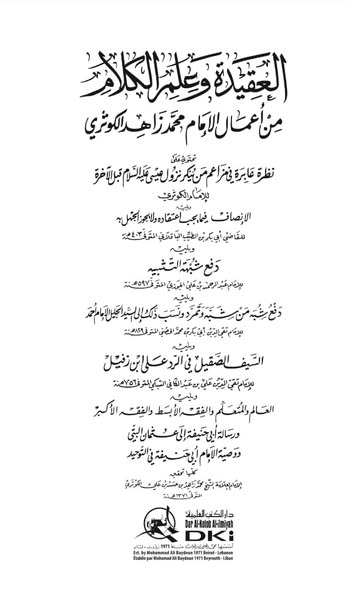 العقيدة وعلم الكلام
من أعمال الإمام محمد زاهد الكوثري
تحتوي على
نظرة عابرة في مزاعم من ينكر نزول عيسى عليه السلام قبل الآخرة
للإمام الكوثري
ويليه
الإنصاف فيما يجب اعتقاده ولا يجوز الجهل به
للقاضي أبي بكر بن الطيب الباقلاني المتوفى ٤٠٣ هـ
ويليه
دفع شبهة التشبيه
للإمام عبد الرحمن بن علي الجوزي المتوفى ٥٩٧ هـ
ويليه
دفع شبه من شبه وتمرد ونسب ذلك إلى السيد الجليل الإمام أحمد
للإمام تقي الدين أبي بكر بن محمد الحصني المتوفى ٨٢٩ هـ
ويليه
السيف الصقيل في الرد على ابن زفيل
للإمام تقي الدين علي بن عبد الكافي السبكي المتوفى ٧٥٦ هـ
ويليه
العالم والمتعلم والفقه الأبسط والفقه الأكبر
ورسالة أبي حنيفة إلى عثمان البتي
ووصية الإمام أبي حنيفة في التوحيد
كلها بتحقيق
المتوفى ١٣٧١ هـ
دار الكتب العلمية
Dar Al-Kotob Al-ilmiyah
DKi
أسسها محمد علي بيضون سنة 1971 بيروت - لبنان
Est. by Mohammad Ali Baydoun 1971 Beirut - Lebanon
Établie par Mohamad Ali Baydoun 1971 Beyrouth - Liban